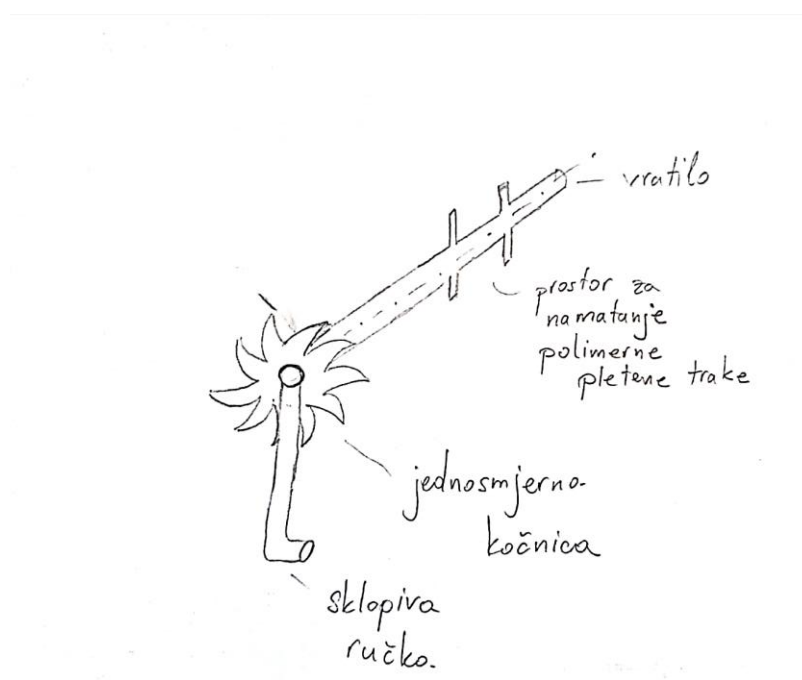 vratilo
prostor za
namatanje
polimerne
pletene trake
jednosmjerno-
kočnica
sklopiva
ručko.